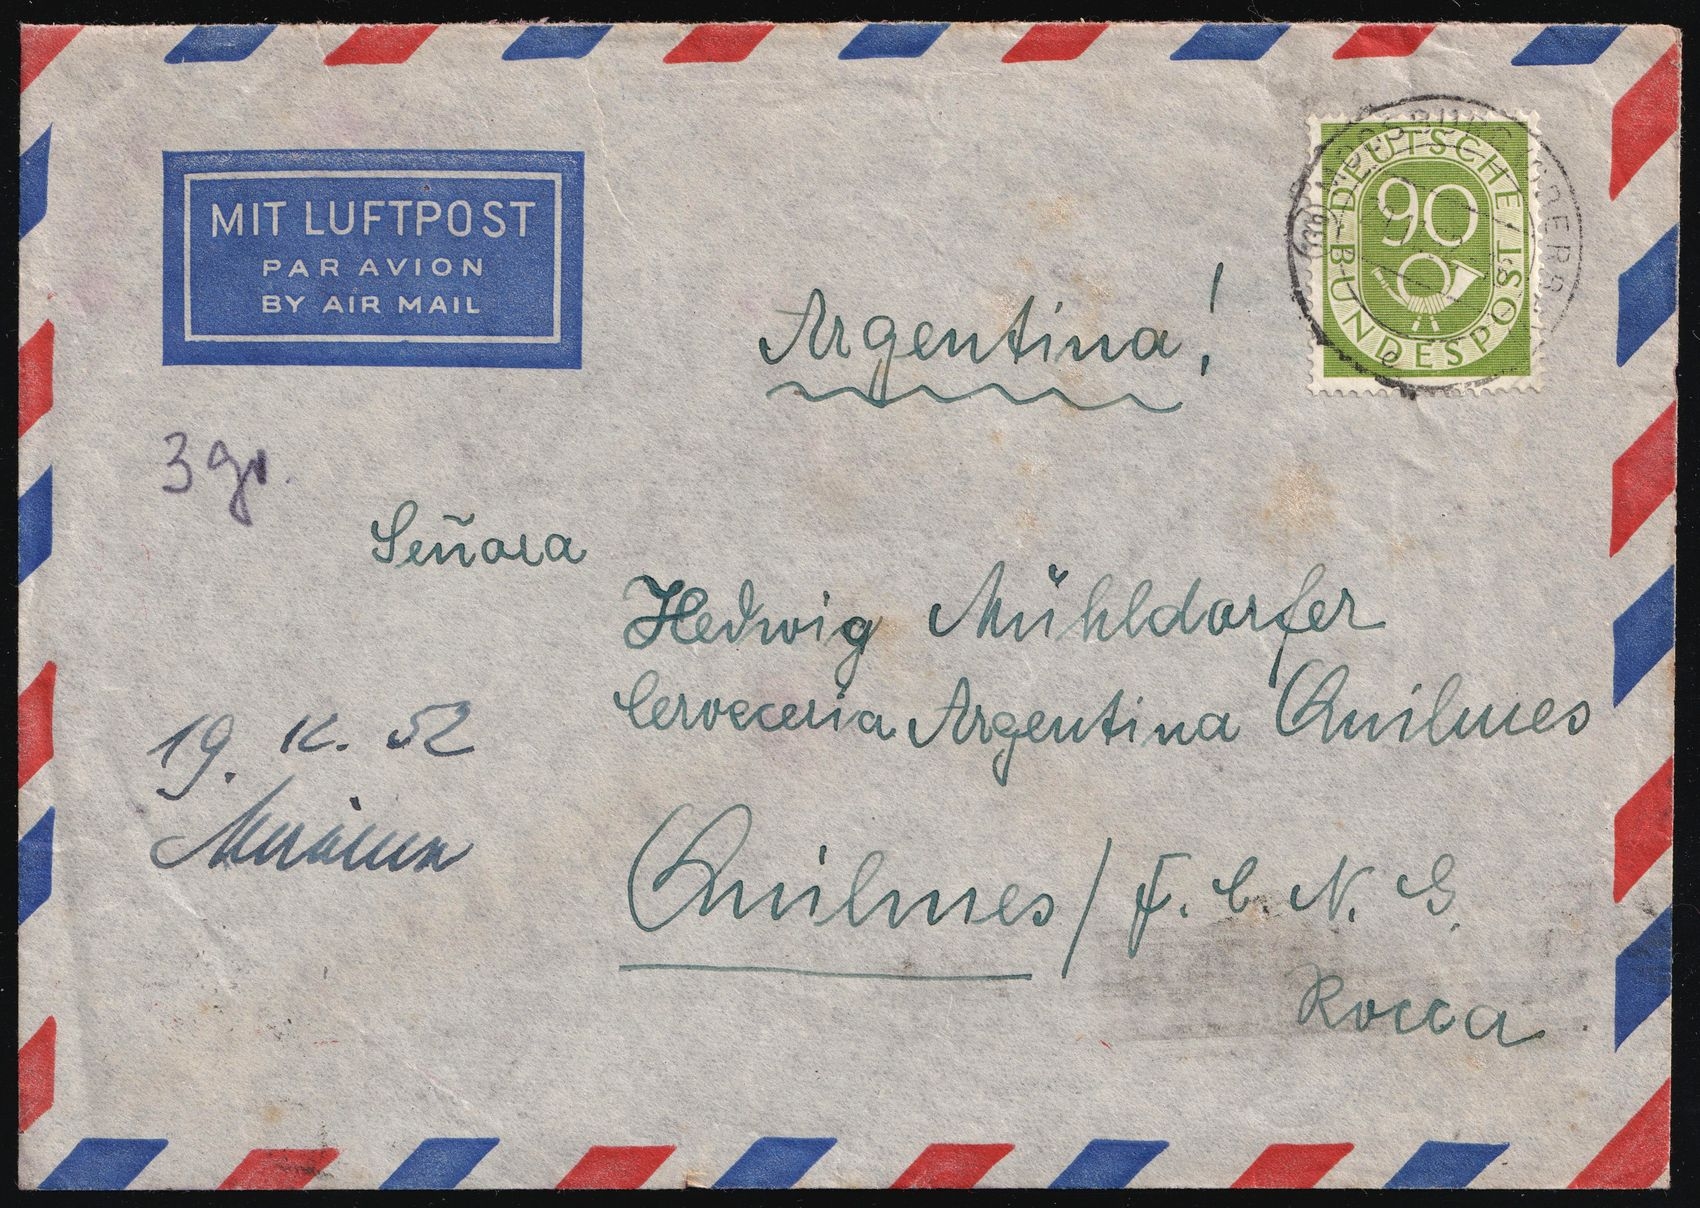 MIT LUFTPOST
PAR AVION
BY AIR MAIL
DEUTSCHE
90
BUNDESPOST
Argentina!
3 gr.
Señora
Hedwig Mühldorfer
Cerveceria Argentina Quilmes
19. IX. 52
Quilmes / F. C. N. G.
Rocca